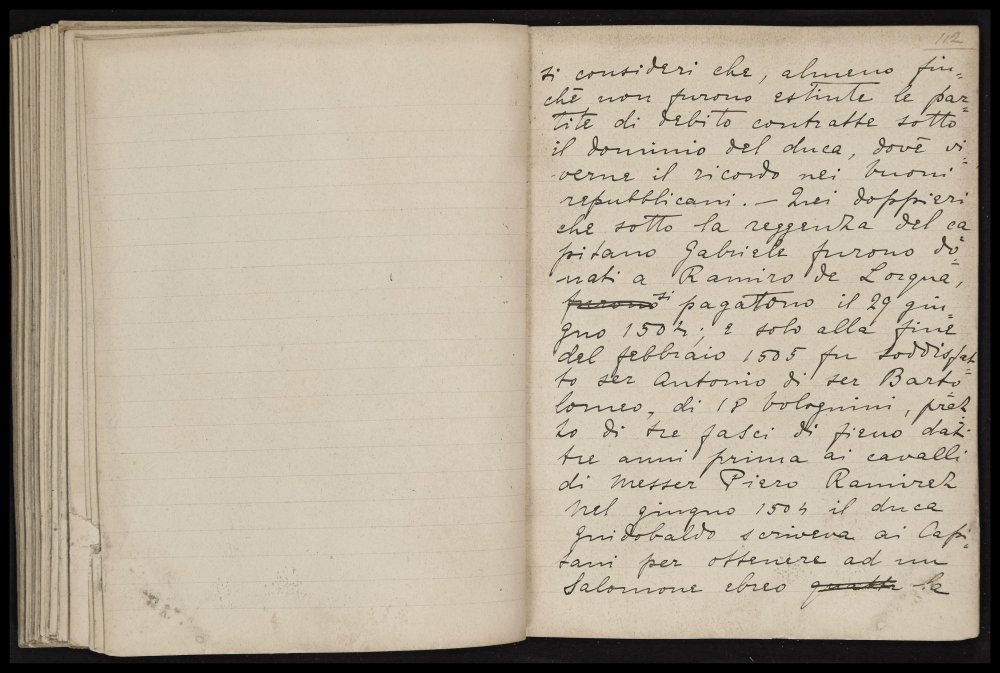 112
si consideri che, almeno fin=
chè non furono estinte le par=
tite di debito contratte sotto
il dominio del duca, dovè vi=
verne il ricordo nei buoni
repubblicani. — Quei doppieri
che sotto la reggenza del ca
pitano Gabriele furono do=
nati a Ramiro de Lorqua,
furono si pagarono il 29 giu=
gno 1504; e solo alla fine
del febbraio 1505 fu soddisfat=
to ser Antonio di ser Barto=
lomeo, di 18 bolognini, prez=
zo di tre fasci di fieno dati
tre anni prima ai cavalli
di messer Piero Ramirez
Nel giugno 1504 il duca
Guidobaldo scriveva ai Capi=
tani per ottenere ad un
Salomone ebreo la